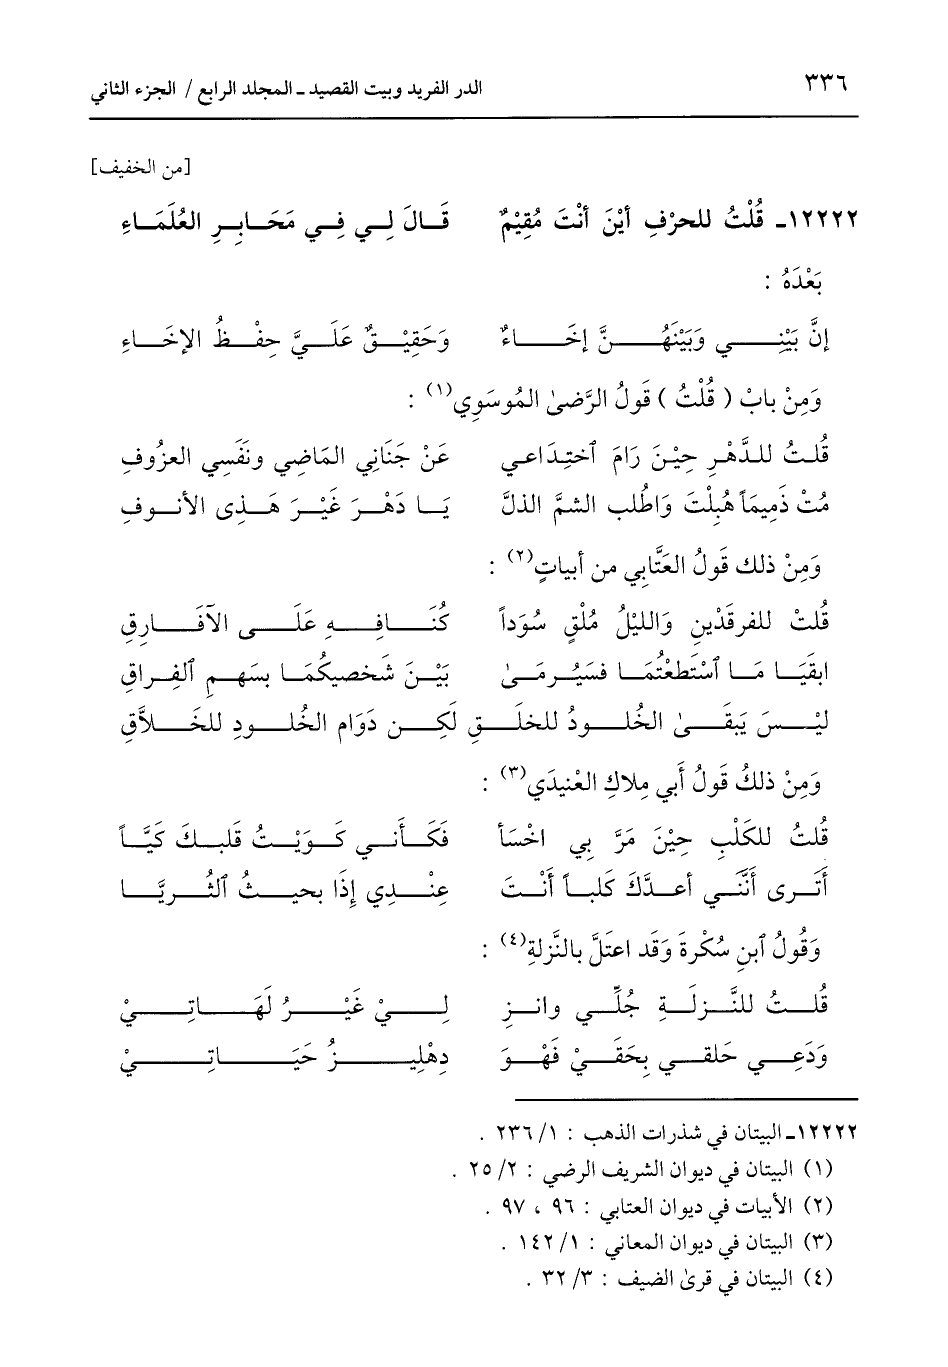 ٣٣٦ الدر الفريد وبيت القصيد ـ المجلد الرابع / الجزء الثاني
[من الخفيف]
١٢٢٢٢ـ قُلْتُ للحرْفِ أيْنَ أنْتَ مُقِيْمٌ قَالَ لِي فِي مَحَابِرِ العُلَمَاءِ
بَعْدَهُ :
إنَّ بَيْنِي وَبَيْنَهُنَّ إخَاءٌ وَحَقِيْقٌ عَلَيَّ حِفْظُ الإخَاءِ
وَمِنْ بابْ ( قُلْتُ ) قَولُ الرَّضىٰ المُوسَوِي(١) :
قُلتُ للدَّهْرِ حِيْنَ رَامَ ٱختِدَاعي عَنْ جَنَاني المَاضِي ونَفَسي العزُوفِ
مُتْ ذَمِيمَاً هُبِلْتَ وَاطُلب الشمَّ الذلَّ يَا دَهْرَ غَيْرَ هَذِى الأنوفِ
وَمِنْ ذلك قَولُ العَتَّابي من أبياتٍ(٢) :
قُلتْ للفرقَدْينِ وَالليْلُ مُلْقٍ سُوَداً كُنَافِهِ عَلَى الآفَارِقِ
ابقَيَا مَا ٱسْتَطعْتُمَا فسَيُرمَىٰ بَيْنَ شَخصيكُمَا بسَهمِ ٱلفِراقِ
ليْسَ يَبقَىٰ الخُلودُ للخلَقِ لَكِن دَوَام الخُلودِ للخَلاَّقِ
وَمِنْ ذلكُ قَولُ أَبي مِلاكِ العْنيدَي(٣) :
قُلتُ للكَلْبِ حِيْنَ مَرَّ بِي اخْسَأ فَكَأنني كَوَيْتُ قَلبكَ كَيَّاً
أَتَرى أنَّنَي أعدَّكَ كَلباً أنْتَ عِنْدِي إذَا بحيثُ ٱلثُريَّا
وَقَولُ ٱبنِ سُكْرةَ وَقَد اعتَلَّ بالنَّزلةِ(٤) :
قُلتُ للنَّزلَةِ جُلِّي وانزِ لِيْ غَيْرُ لَهَاتِيْ
وَدَعِي حَلقي بِحَقَيْ فَهْوَ دِهْلِيزُ حَيَاتِيْ
١٢٢٢٢ـ البيتان في شذرات الذهب : ١/ ٢٣٦ .
(١) البيتان في ديوان الشريف الرضي : ٢/ ٢٥ .
(٢) الأبيات في ديوان العتابي : ٩٦ ، ٩٧ .
(٣) البيتان في ديوان المعاني : ١/ ١٤٢ .
(٤) البيتان في قرىٰ الضيف : ٣/ ٣٢ .